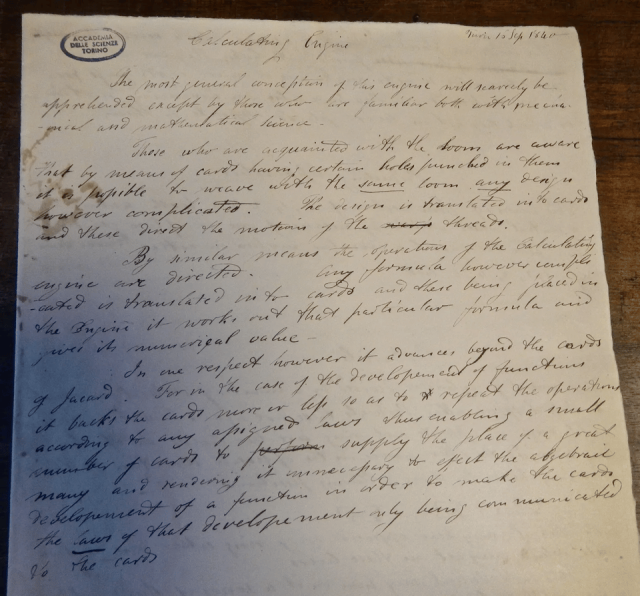 ACCADEMIA
DELLE SCIENZE
TORINO
Calculating Engine
15 Sep 1840
The most general conception of this engine will scarcely be
apprehended except by those who are familiar both with mecha-
-nical and mathematical science.
Those who are acquainted with the loom are aware
that by means of cards having certain holes punched in them
it is possible to weave with the same loom any design
however complicated. The design is translated into cards
and these direct the motions of the threads.
By similar means the operations of the Calculating
engine are directed. Any formula however compli
-cated is translated in to cards and these being placed in
the Engine it works out that particular formula and
gives its numerical value -
In one respect however it advances beyond the cards
of Jacard. For in the case of the developement of functions
it backs the cards more or less so as to repeat the operations
according to any assigned laws thus enabling a small
number of cards to perform supply the place of a great
many and rendering it unnecessary to effect the algebraic
developement of a function in order to make the cards
the laws of that developement only being communicated
to the cards